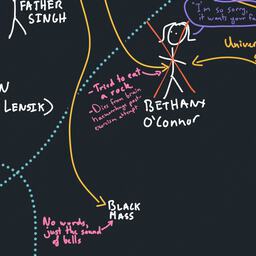 FATHER
SINGH
"I'm so sorry,
it wants your fa
Univer
- Tried to eat
a rock
- Dies from brain
haemorrhage post-
exorcism attempt
BETHANY
O'Connor
N
LENSIK)
No words,
just the sound
of bells
BLACK
MASS